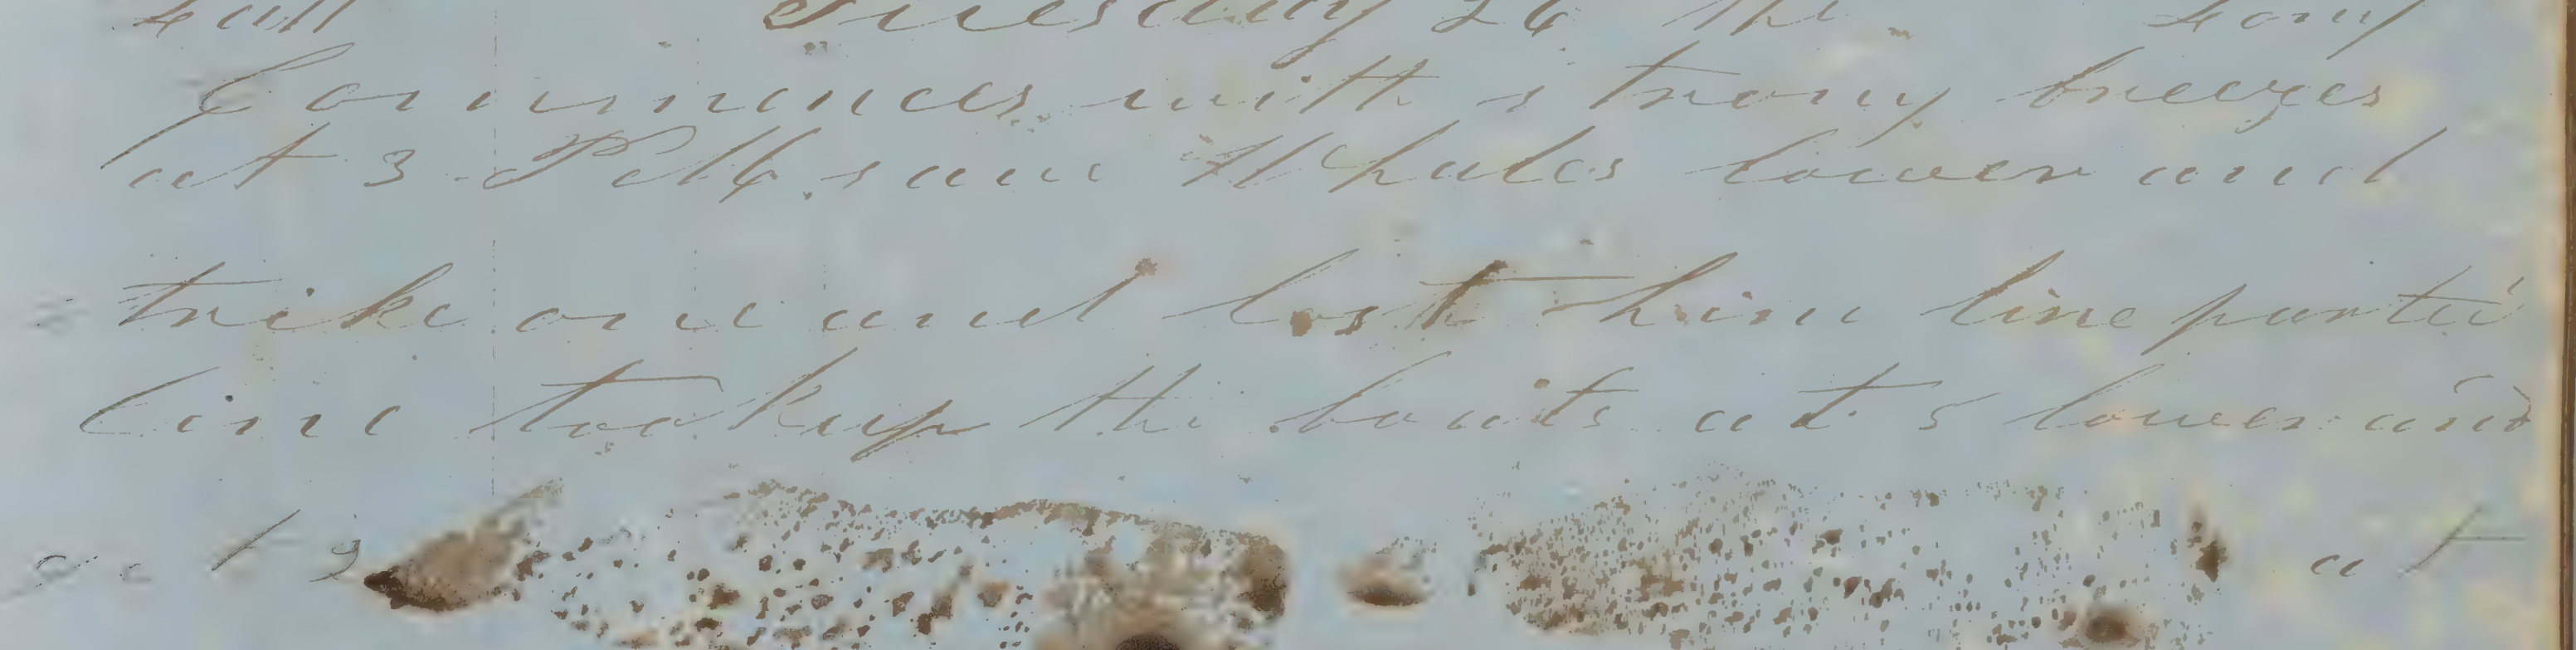 Latt Tuesday 26 the Long
Comences with strong breezes
at 3 PM saw Whales lower and
trike one and lost him line parted
line took up the boats at 5 lower and
get 2 at